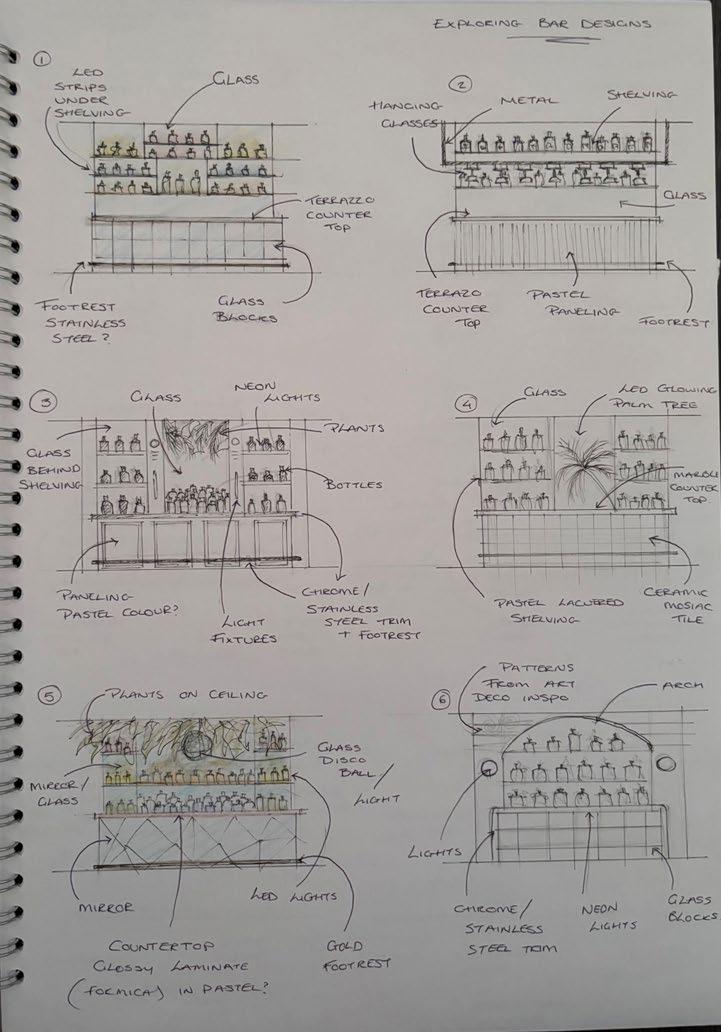 EXPLORING BAR DESIGNS
1
LED
STRIPS
UNDER
SHELVING
GLASS
TERRAZZO
COUNTER
TOP
FOOTREST
STAINLESS
STEEL?
GLASS
BLOCKS
2
HANGING
GLASSES
METAL
SHELVING
GLASS
TERRAZO
COUNTER
TOP
PASTEL
PANELING
FOOTREST
3
GLASS
NEON
LIGHTS
PLANTS
GLASS
BEHIND
SHELVING
BOTTLES
PANELING
PASTEL COLOUR?
LIGHT
FIXTURES
CHROME/
STAINLESS
STEEL TRIM
+ FOOTREST
4
GLASS
LED GLOWING
PALM TREE
MARBLE
COUNTER
TOP.
PASTEL LACUERED
SHELVING
CERAMIC
MOSIAC
TILE
5
PLANTS ON CEILING
GLASS
DISCO
BALL/
LIGHT
MIRROR/
GLASS
LED LIGHTS
MIRROR
COUNTERTOP
GLOSSY LAMINATE
(FORMICA) IN PASTEL?
GOLD
FOOTREST
6
PATTERNS
FROM ART
DECO INSPO
ARCH
LIGHTS
CHROME/
STAINLESS
STEEL TRIM
NEON
LIGHTS
GLASS
BLOCKS